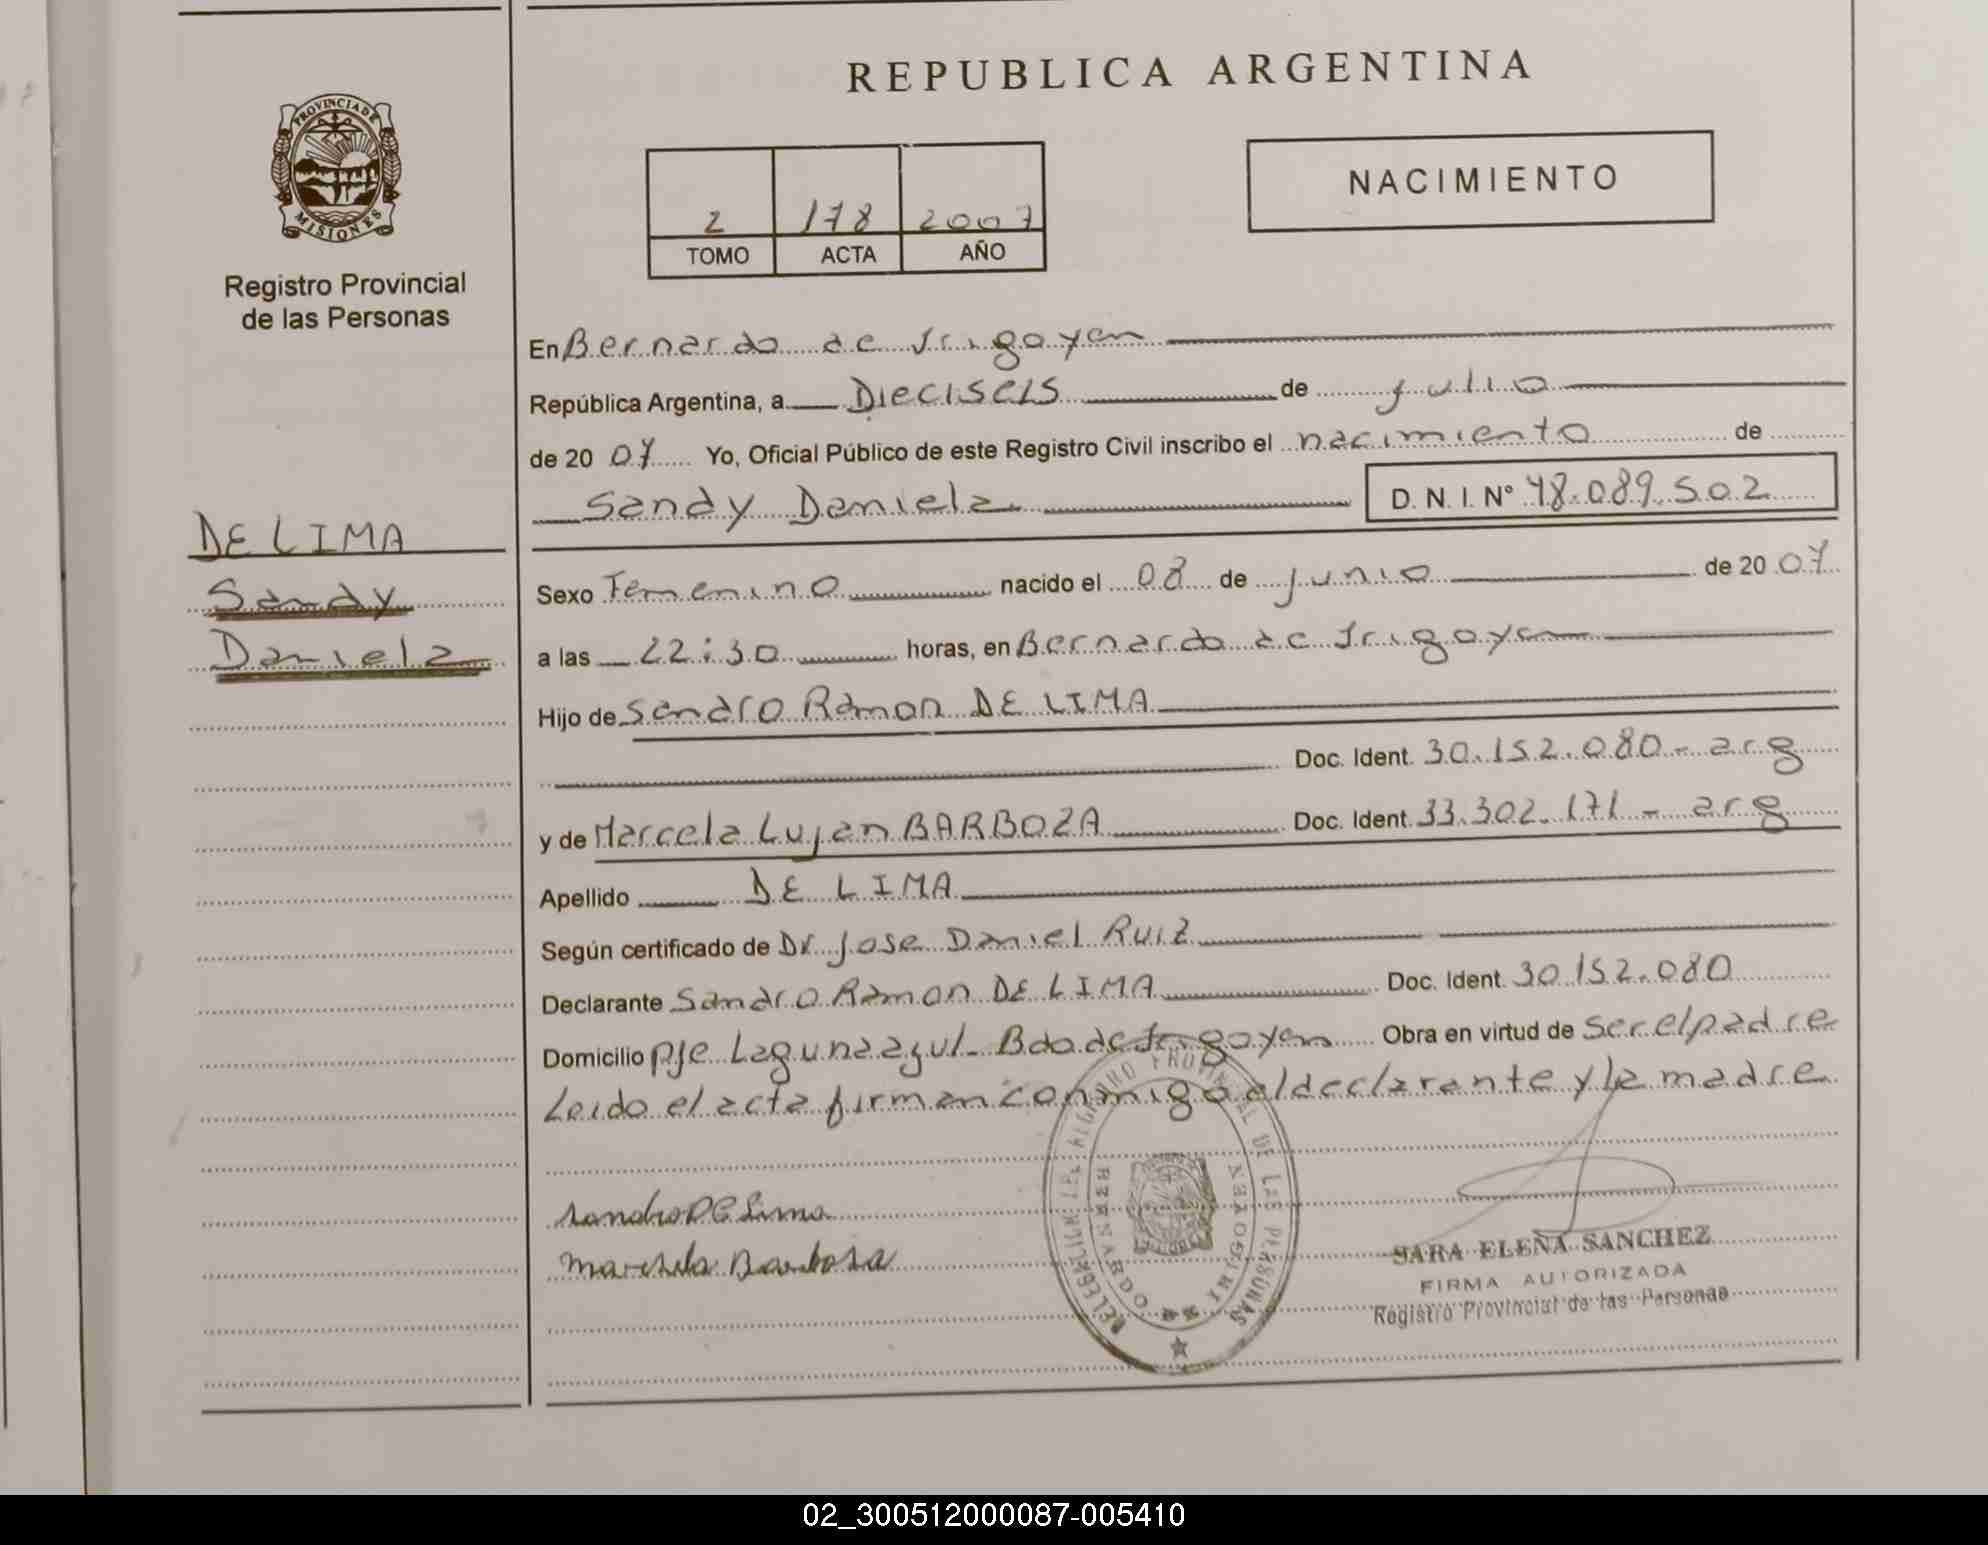 REPUBLICA ARGENTINA
PROVINCIA DE
MISIONES
Registro Provincial
de las Personas
NACIMIENTO
2 178 2007
TOMO ACTA AÑO
DE LIMA
Sandy
Daniela
En Bernardo de Irigoyen
República Argentina, a Dieciseis de julio
de 20 07 Yo, Oficial Público de este Registro Civil inscribo el nacimiento de
Sandy Daniela D. N. I. Nº 48.089.502
Sexo Femenino nacido el 08 de junio de 20 07
a las 22:30 horas, en Bernardo de Irigoyen
Hijo de Sandro Ramon DE LIMA
Doc. Ident. 30.152.080 - arg
y de Marcela Lujan BARBOZA Doc. Ident. 33.302.171 - arg
Apellido DE LIMA
Según certificado de Dr. Jose Daniel Ruiz
Declarante Sandro Ramon DE LIMA Doc. Ident. 30.152.080
Domicilio pje Laguna azul - Bdo de Irigoyen Obra en virtud de ser el padre
Leido el acta firman conmigo el declarante y la madre
Sandro DE Lima
Marcela Barboza
DELEGACION DEL REGISTRO PROVINCIAL DE LAS PERSONAS
BERNARDO DE IRIGOYEN
SARA ELENA SANCHEZ
FIRMA AUTORIZADA
Registro Provincial de las Personas
02_300512000087-005410